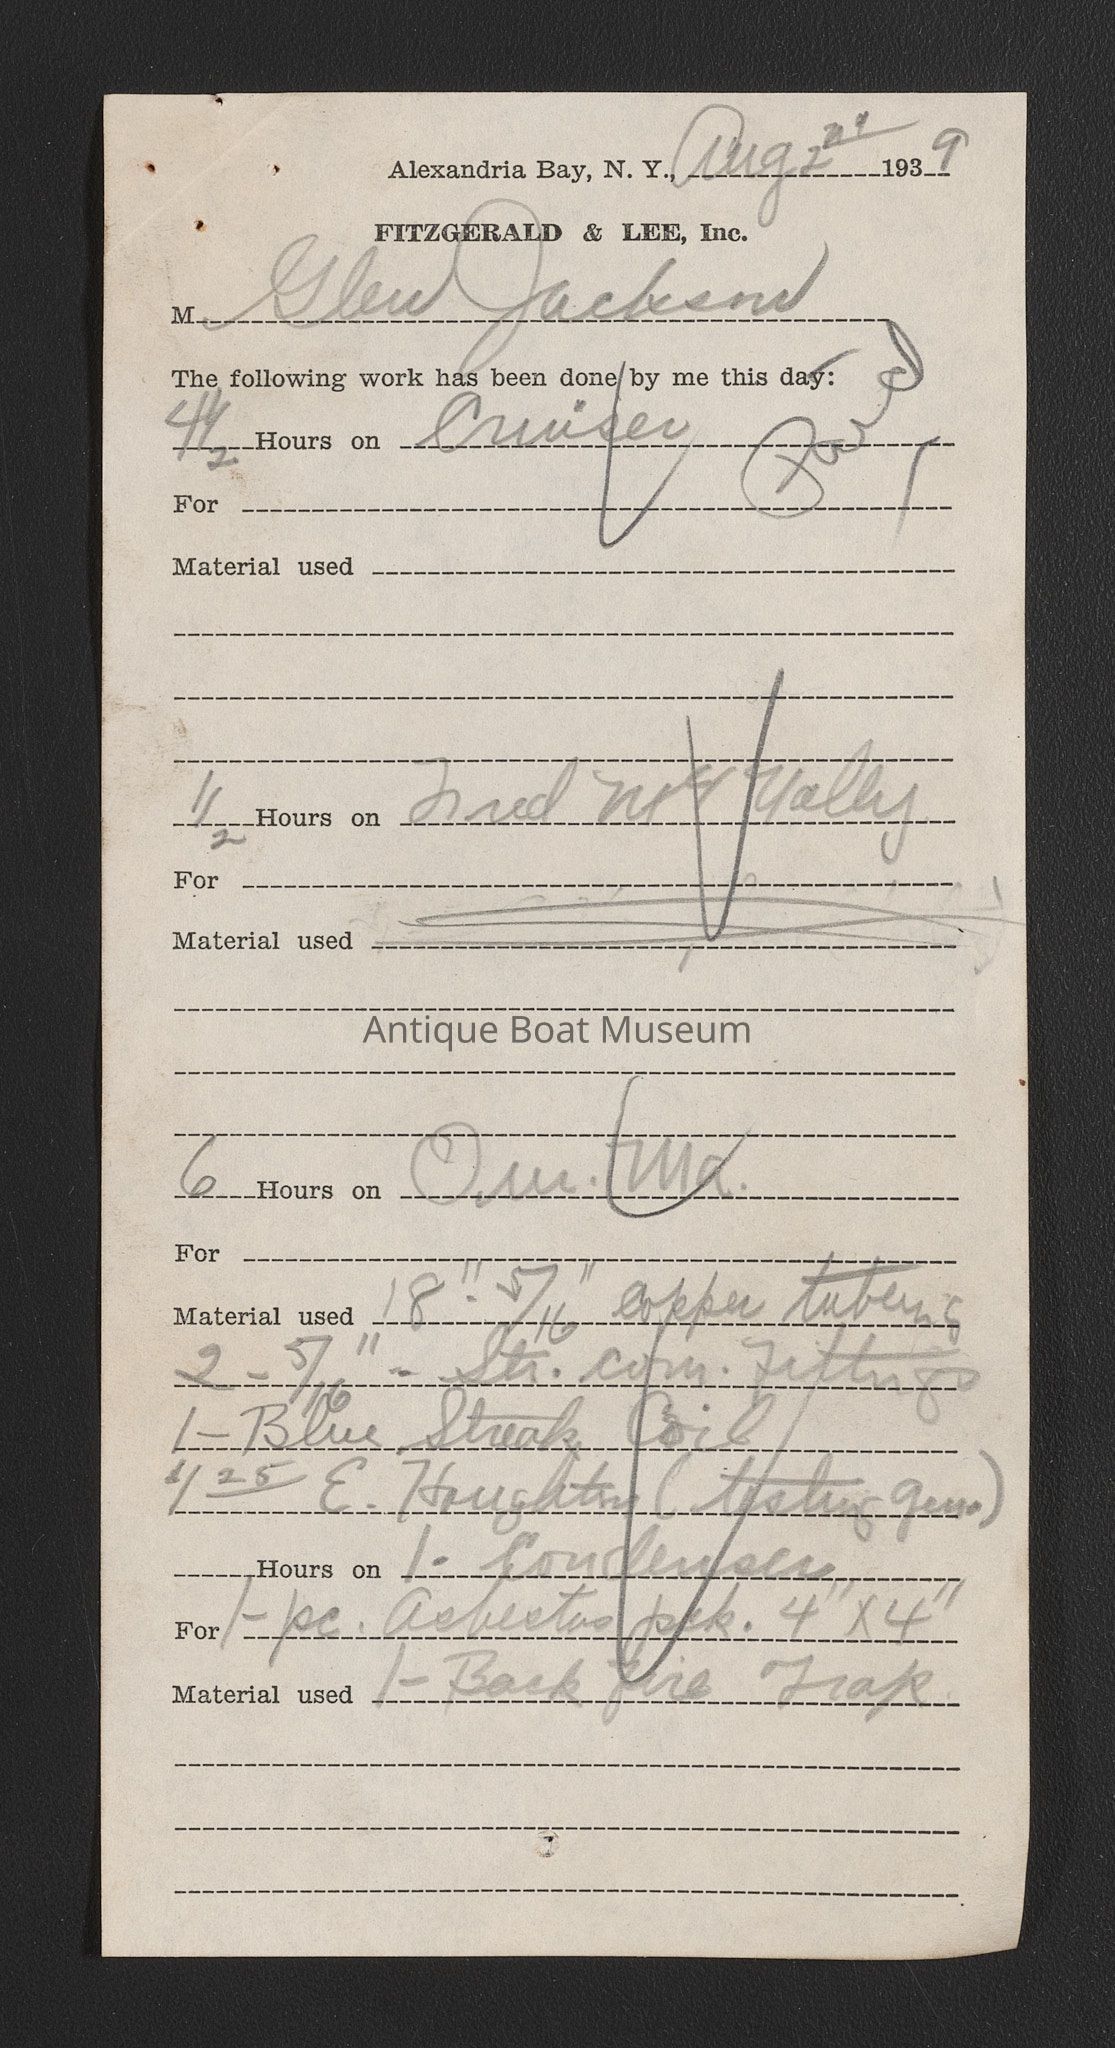 Alexandria Bay, N. Y., Aug 2nd 1939
FITZGERALD & LEE, Inc.
M Glen Jackson
The following work has been done by me this day:
4 1/2 Hours on Cruiser
Paid
For
Material used
1/2 Hours on Fred Nally
For
Material used
Antique Boat Museum
6 Hours on
For
Material used 18" - 5/16" copper tubing
2 - 5/16" - Str. com. Fittings
1 - Blue Streak Coil
25 E. Houghton (testing gen.)
Hours on 1 - Condenser
For 1 - pc. Asbestos pck. 4" x 4"
Material used 1 - Back fire Trap